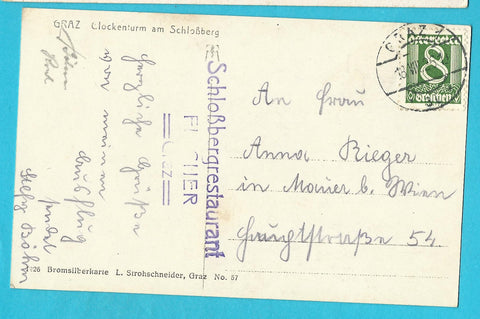 GRAZ Glockenturm am Schloßberg
herzliche Grüße
von meinem
Ausflug
sendet
Böhm
Schloßbergrestaurant
GRAZ
8
Groschen
An Frau
Anna Rieger
in Mauer b. Wien
Hauptstraße 54.
1926 Bromsilberkarte L. Strohschneider, Graz No. 57